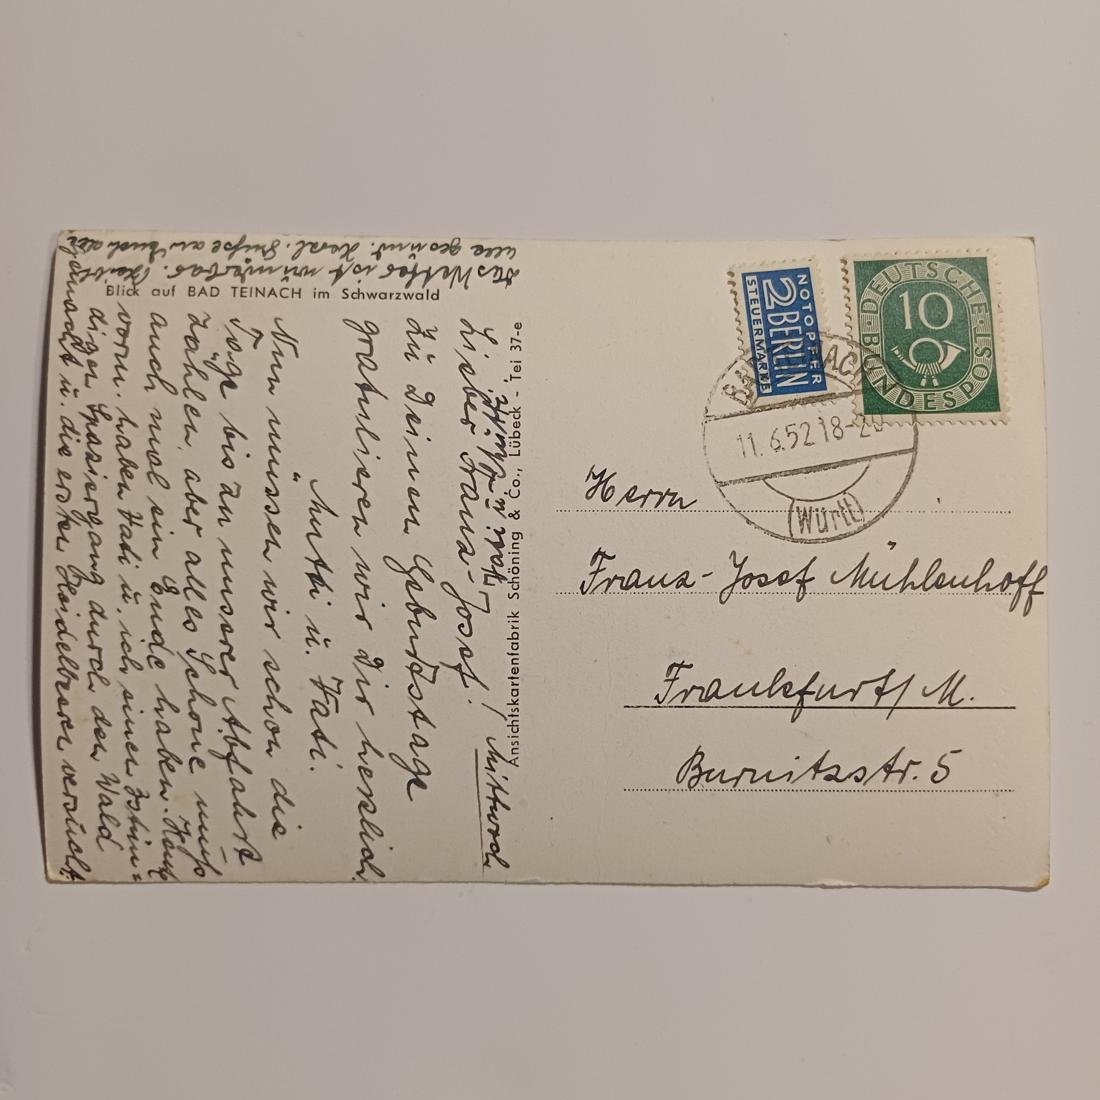 Blick auf BAD TEINACH im Schwarzwald
Mittwoch
Lieber Franz-Josef!
Zu Deinem Geburtstage
gratulieren wir Dir herzlich
Mutti u. Vati.
Nun müssen wir schon die
Tage bis zu unserer Abfahrt
zählen, aber alles Schöne muß
auch mal ein Ende haben. Heute
vorm. haben Vati u. ich einen 2stün=
digen Spaziergang durch den Wald
gemacht u. die ersten Heidelbeeren versucht.
Das Wetter ist wunderbar. Bleibt
alle gesund. Herzl. Grüße an Euch alle
Vati u. Mutti
Ansichtskartenfabrik Schöning & Co., Lübeck - Tei 37-e
NOTOPFER
2 BERLIN
STEUERMARKE
DEUTSCHE BUNDESPOST
10
BAD TEINACH
11.6.52 18-20
(Württ)
Herrn
Franz-Josef Mühlenhoff
Frankfurt/M.
Burnitzstr. 5